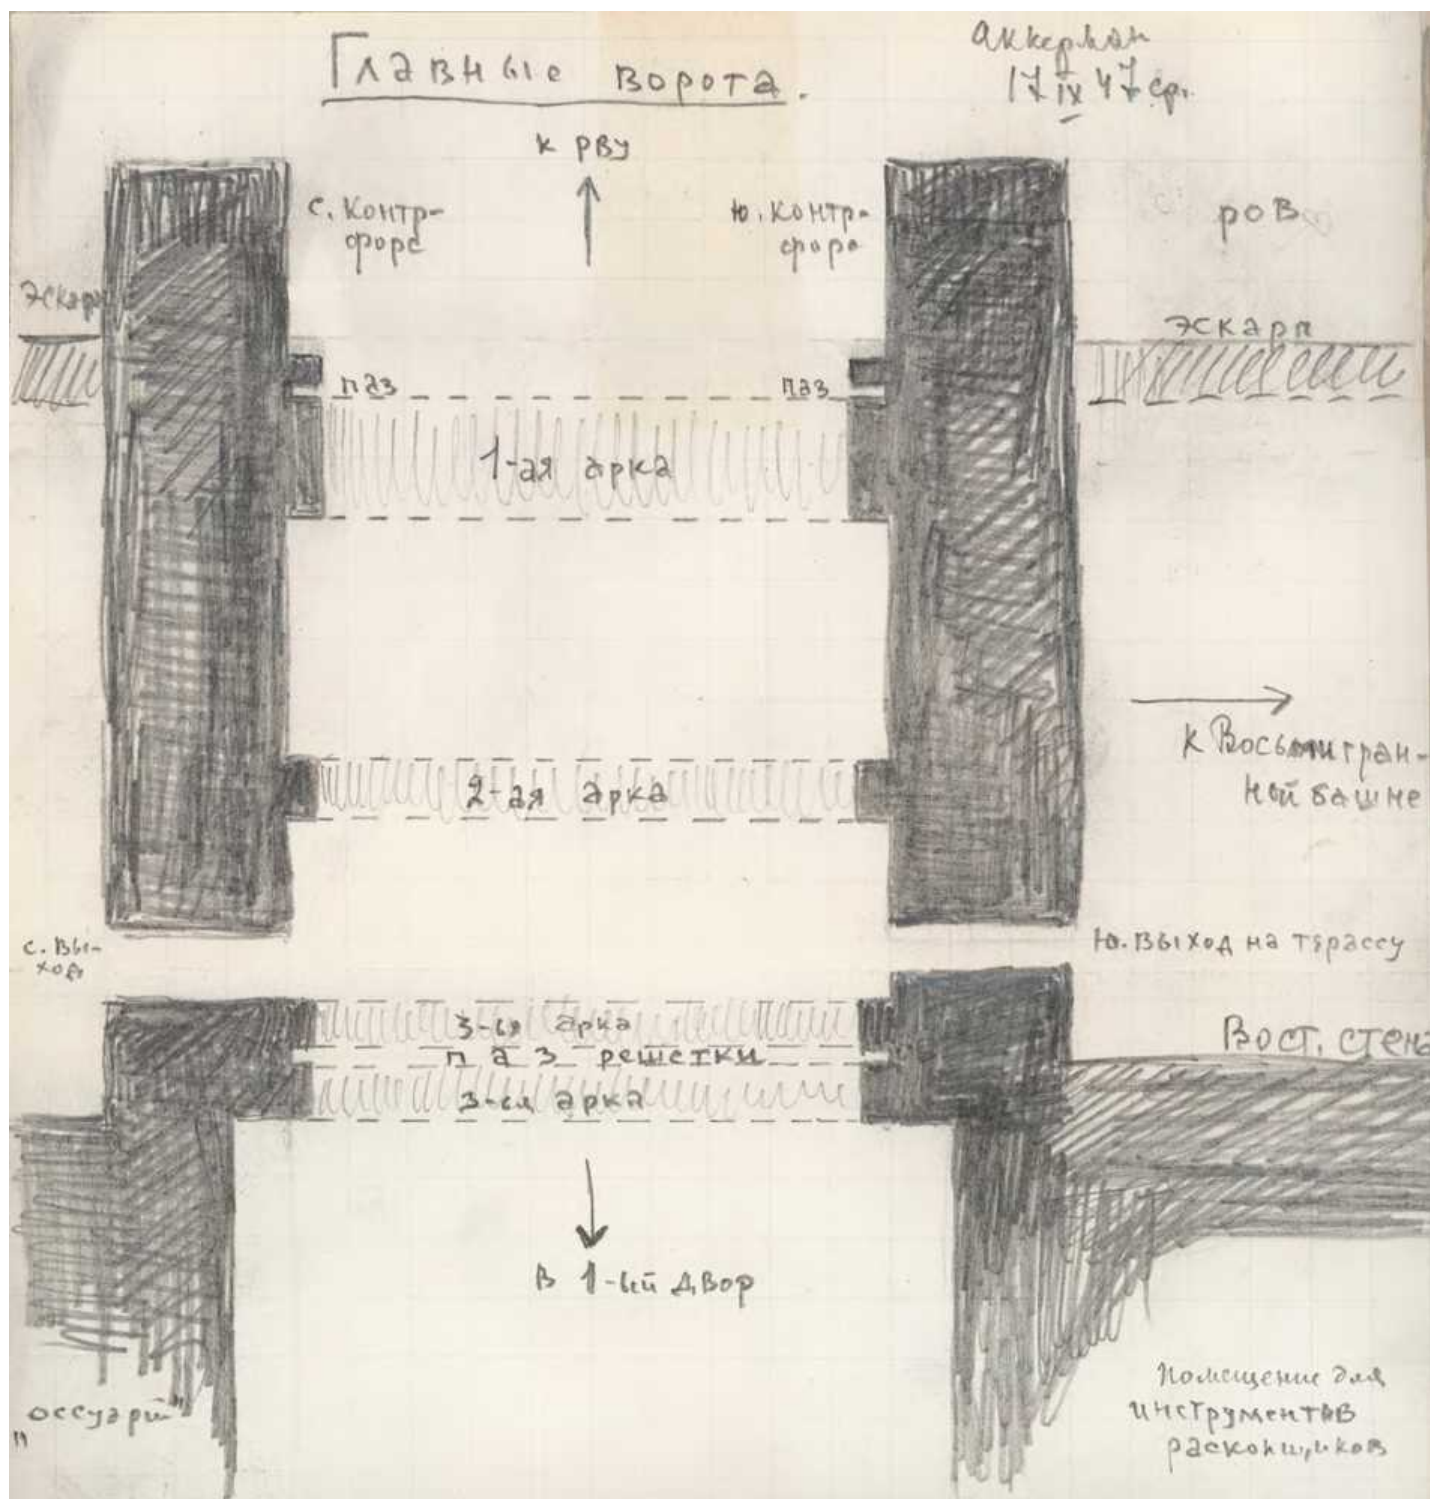 Главные ворота.
Аккерман
17 IX 47 ср.
к рву
с. контр-
форс
ю. контр-
форс
ров
эскарп
эскарп
паз
паз
1-ая арка
к Восьмигран-
ной башне
2-ая арка
с. вы-
ход
ю. выход на терассу
3-ья арка
паз решетки
3-ья арка
Вост. стена
в 1-ый двор
"оссуарий"
помещение для
инструментов
раскопщиков